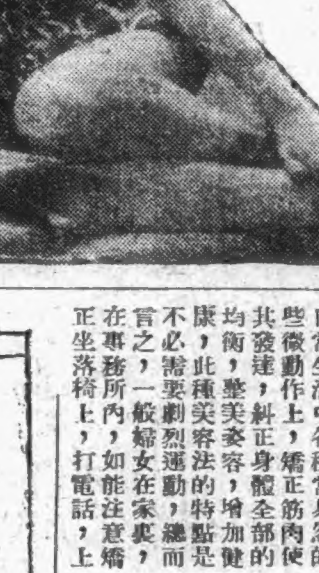 些微動作上，矯正筋肉使
其發達，糾正身體全部的
均衡，整美姿容，增加健
康，此種美容法的特點是
不必需要劇烈運動，總而
言之，一般婦女在家裏，
在事務所內，如能注意矯
正坐落椅上，打電話，上